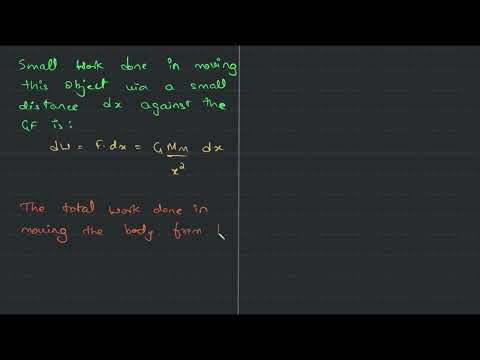 Small work done in moving
this object via a small
distance dx against the
GF is:
dW = F.dx = G Mm/x² dx
The total work done in
moving the body from